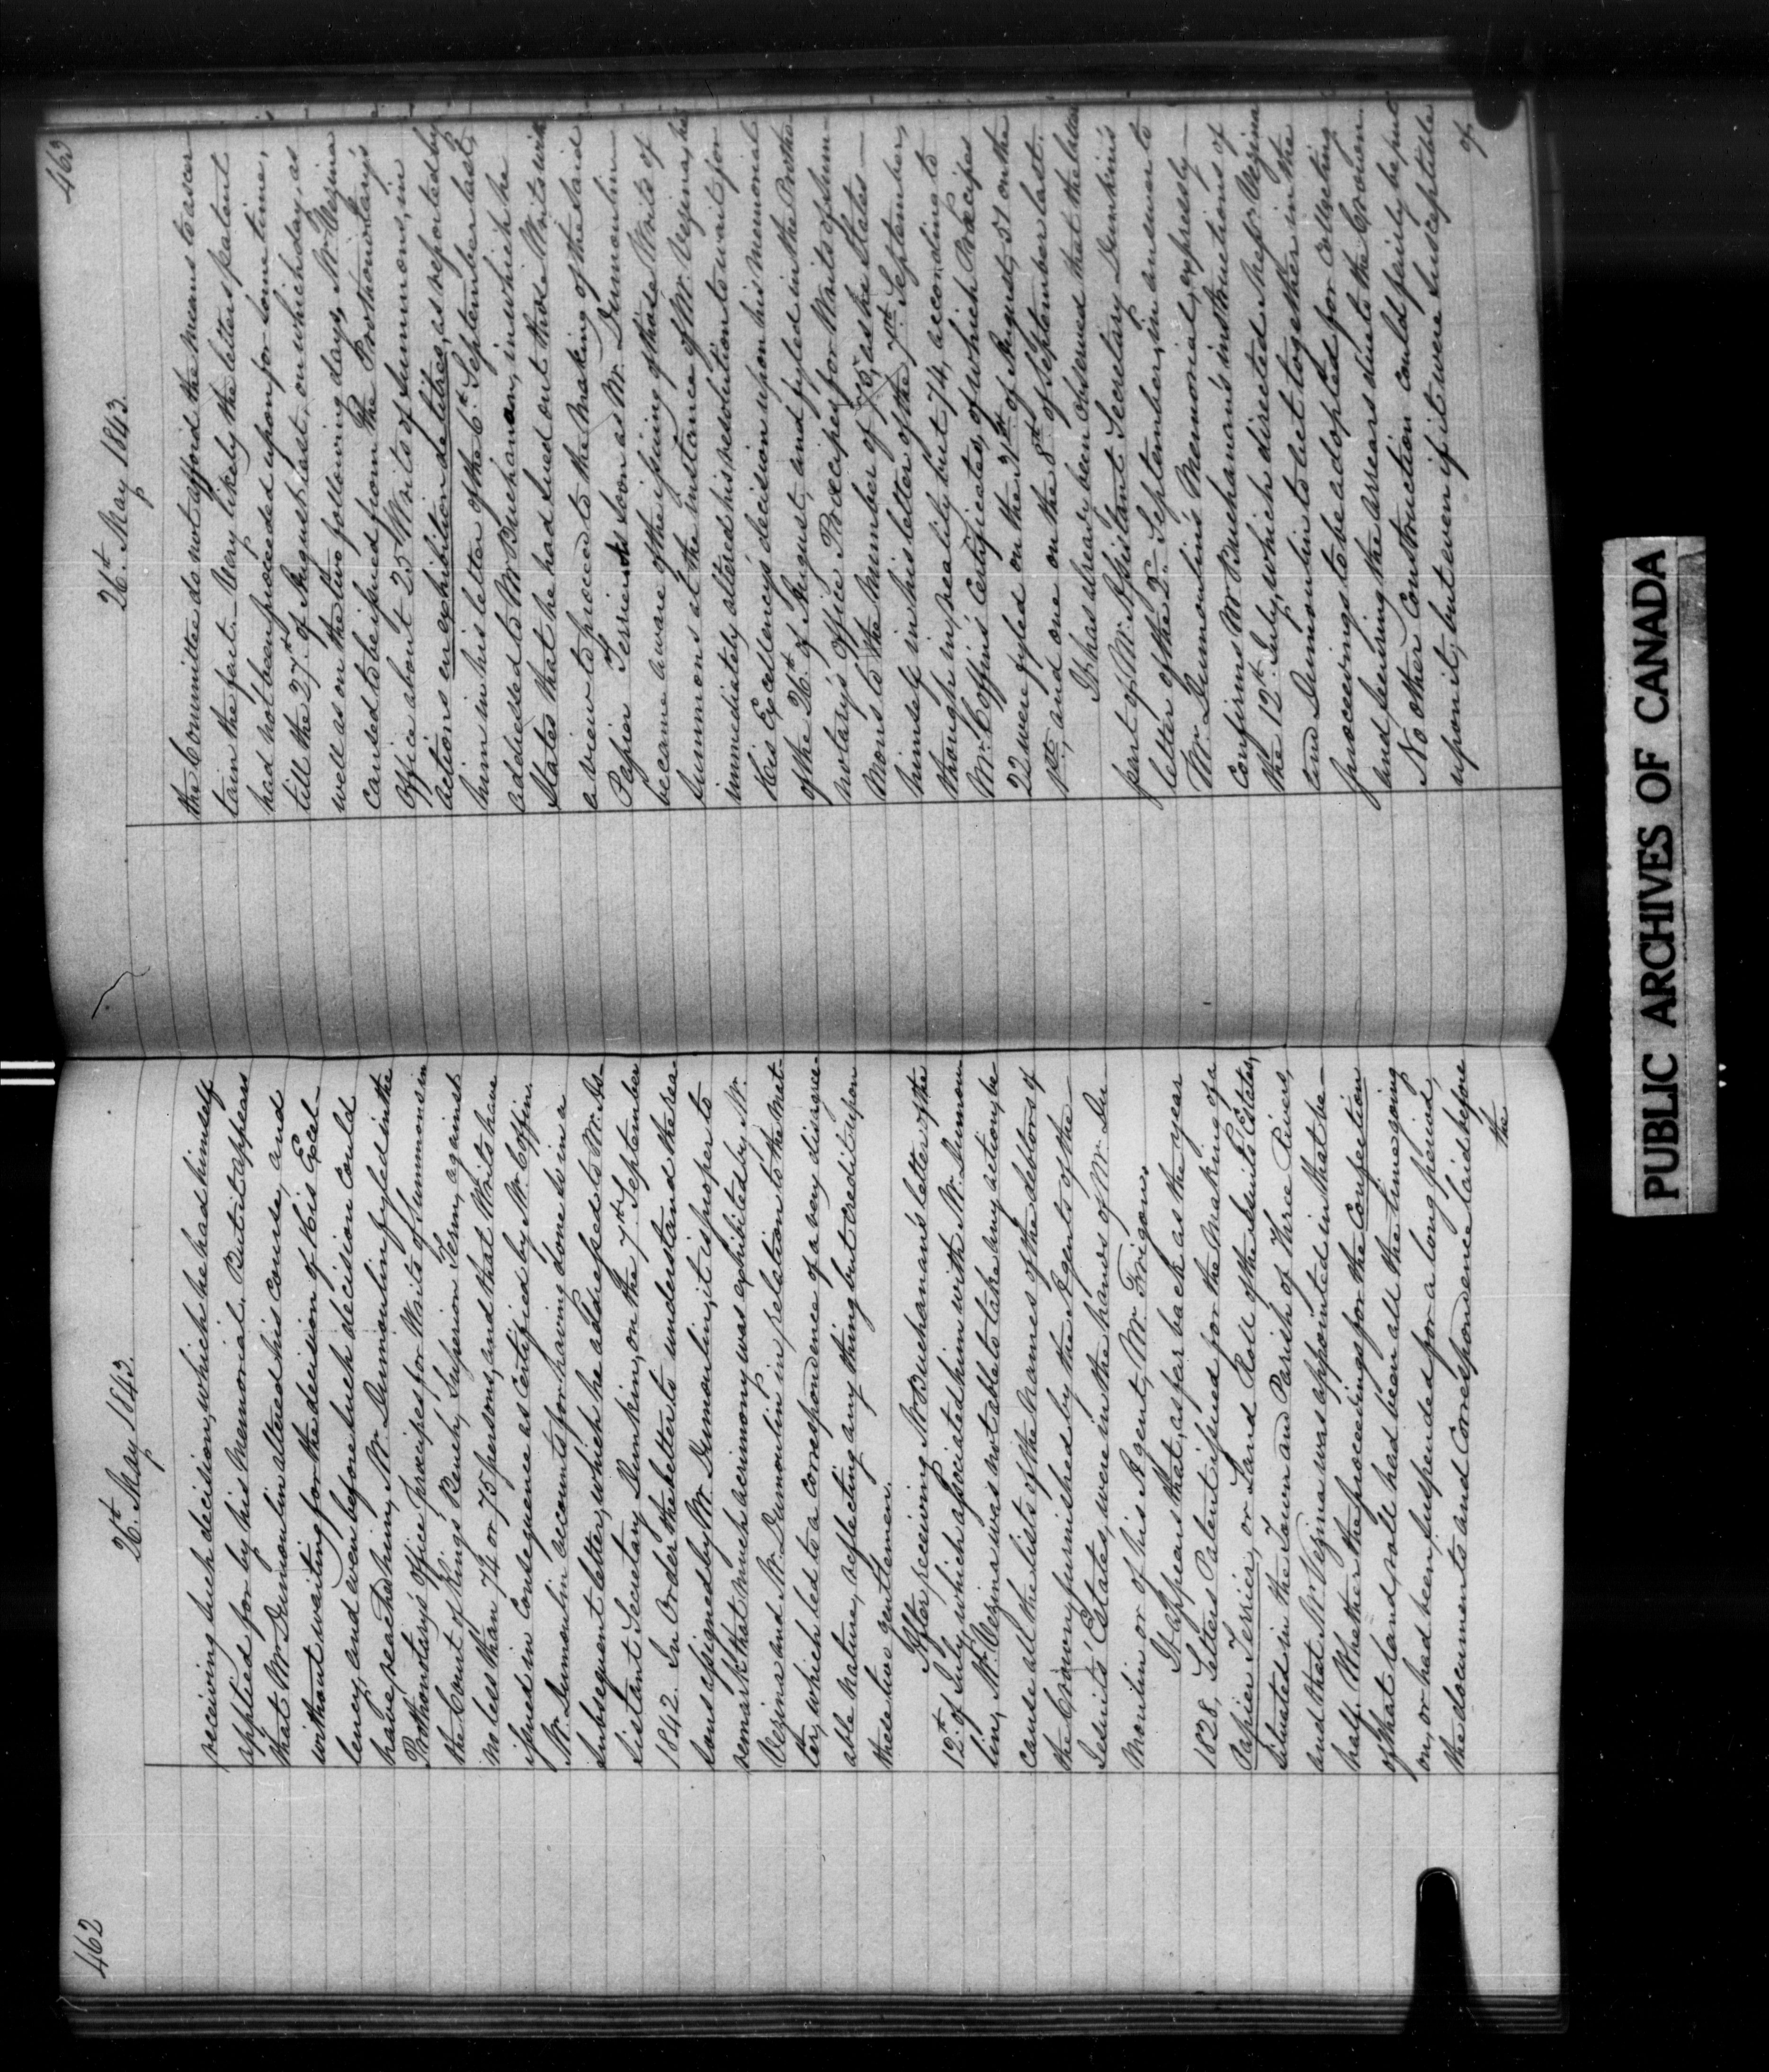 462
26th. May 1843.
receiving such decision, which he had himself
applied for by his Memorial. But it appears
that Mr Dumoulin altered his course, and
without waiting for the decision of His Excel-
lency, and even before such decision could
have reached him, Mr. Dumoulin fyled in the
Prothonotary's Office Præcipes for Writs of Summons in
the Court of King's Bench, Superior Term, against
no less than 74 or 75 persons, and that Writs have
issued in Consequence as Certified by Mr. Coffin.
Mr. Dumoulin accounts for having done so in a
subsequent letter, which he addressed to Mr. As-
sistant Secretary Dunkin, on the 7th September
1842. In Order the better to understand the rea-
sons assigned by Mr Dumoulin, it is proper to
remark that much acrimony was exhibited by Mr.
Vezina and Mr. Dumoulin in relation to the mat-
ter, which led to a correspondence of a very disagree-
able nature, reflecting any thing but credit upon
these two gentlemen.
After receiving Mr Buchanan's letter of the
12th. of July, which associated him with Mr. Dumou-
lin, Mr. Vezina was not able to take any action, be-
cause all the lists of the names of the debtors of
the Crown, furnished by the Agents of the
Jesuits' Estates, were in the hands of Mr. Du
Moulin or of his Agent, Mr Frigon.
It appears that, as far back as the year
1828, Letters Patent issued for the making of a
Papier Terrier, or Land Roll of the Jesuits' Estates,
situated in the Town and Parish of Three Rivers,
and that Mr Vezina was appointed in that be-
half. Whether the proceedings for the Confection
of that land roll had been all the time going
on, or had been suspended for a long period,
the documents and Correspondence laid before
the
463
26th. May 1843.
the Committee do not afford the means to ascer
tain the fact. Very likely the letters patent
had not been proceeded upon for some time,
till the 27th. of August last, on which day, as
well as on the two following days, Mr. Vezina
caused to be issued from the Prothonotary's
Office about 25 Writs of Summons, in
actions en exhibition de titres, as reported by
him in his letter of the 6th. September last,
addressed to Mr Buchanan, in which he
states that he had sued out those Writs with
a view to proceed to the making of the said
Papier Terrier. As soon as Mr. Dumoulin
became aware of the issuing of those Writs of
Summons at the instance of Mr. Vezina, he
immediately altered his resolution to wait for
His Excellency's decision upon his memorial
of the 26th. of August, and fyled in the Protho
notary's Office Præcipes for Writs of Sum-
mons to the Number of 75, as he states
himself in his letter of the 7th. September,
though in reality but 74, according to
Mr. Coffin's Certificates, of which Præcipes
22 were fyled on the 31st of August, 51 on the
1st, and one on the 8th of September last.
It has already been observed that the latter
part of Mr. Assistant Secretary Dunkin's
letter of the 2d. September, in answer to
Mr. Dumoulin's Memorial, expressly
confirms Mr Buchanan's instructions of
the 12th. July, which directed Messrs. Vezina
and Dumoulin to act together in the
proceedings to be adopted for collecting
and securing the arrears due to the Crown.
No other Construction could fairly be put
upon it; but even if it were susceptible
of
PUBLIC ARCHIVES OF CANADA